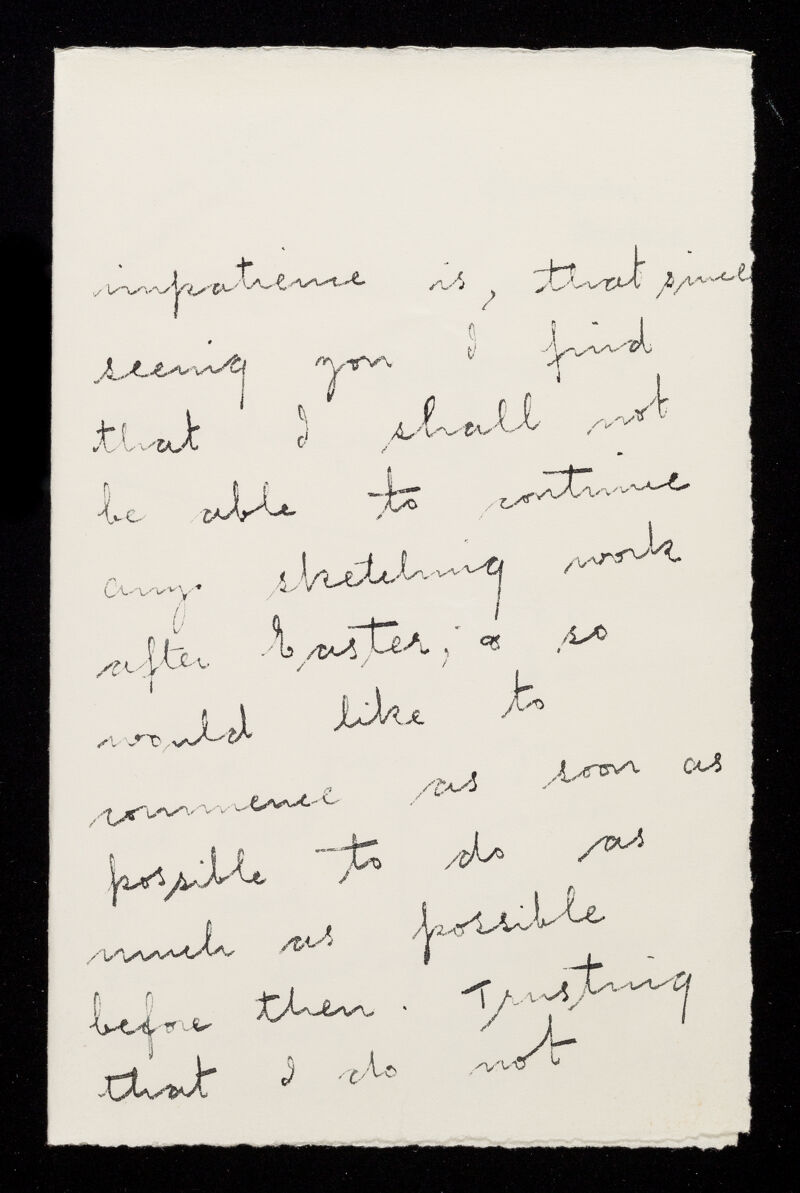 impatience is, that since
seeing you I find
that I shall not
be able to continue
any sketching work
after Easter; & so
would like to
commence as soon as
possible to do as
much as possible
before then. Trusting
that I do not